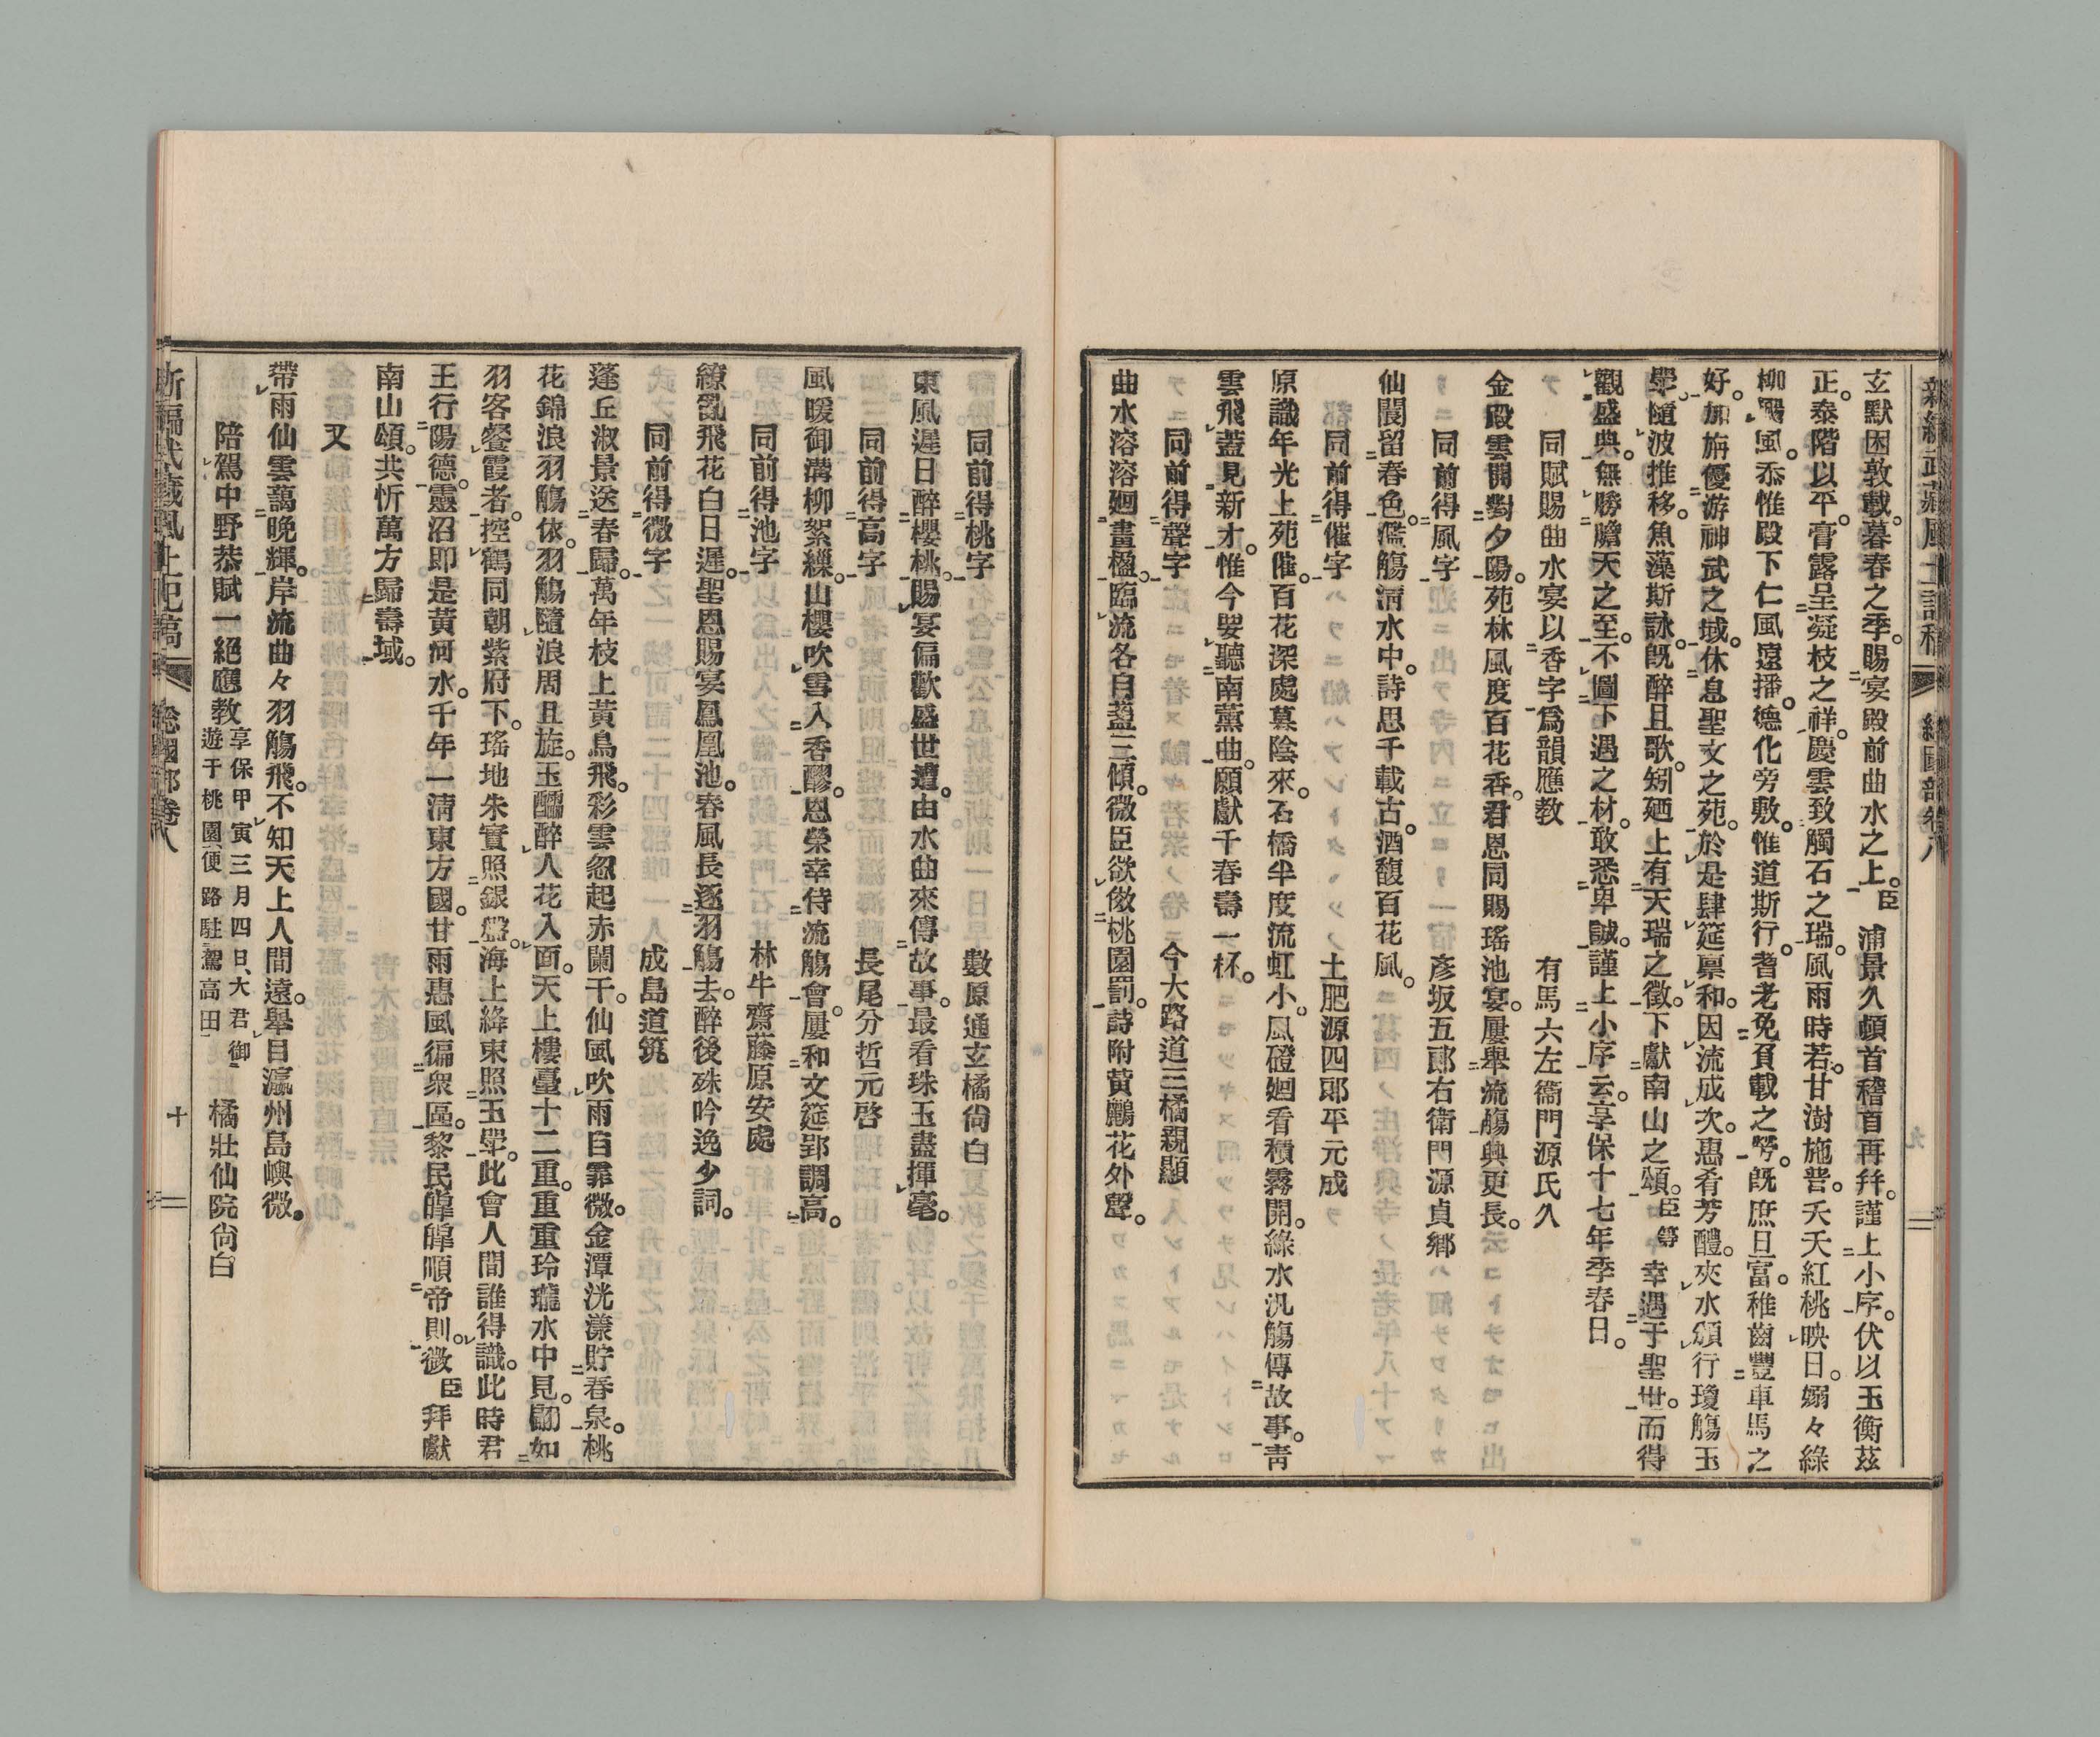 新編武蔵風土記稿 總國部卷八 九
玄默困敦載。暮春之季。賜宴殿前曲水之上。臣浦景久頓首稽首再拜。謹上小序。伏以玉衡玆
正。泰階以平。膏露呈凝枝之祥。慶雲致觸石之瑞。風雨時若。甘澍施普。夭夭紅桃映日。嫋々綠
柳颺風。忝惟殿下仁風遠播。德化旁敷。惟道斯行。耆老免負載之勞。既庶日富。稚齒豐車馬之
好。加旃優游神武之域。休息聖文之苑。於是肆筵稟和。因流成次。惠肴芳醴。夾水瀕行瓊觴玉
斝。隨波推移。魚藻斯詠。既醉且歌。矧廼上有天瑞之徵。下獻南山之頌。臣等幸遇于聖世。而得
觀盛典。無勝瞻天之至。不圖下遇之材。敢悉卑誠。謹上小序云。享保十七年季春日。
同賦賜曲水宴以香字爲韻應教 有馬六左衞門源氏久
金殿雲開對夕陽。苑林風度百花香。君恩同賜瑤池宴。屢擧流觴興更長。
同前得風字 彥坂五郎右衛門源貞鄉
仙閣留春色。濫觴淸水中。詩思千載古。酒馥百花風。
同前得催字 土肥源四郎平元成
原識年光上苑催。百花深處慕陰來。石橋半度流虹小。風磴廻看積霧開。綠水汎觴傳故事。靑
雲飛蓋見新才。惟今要聽南薰曲。願獻千春壽一杯。
同前得聲字 今大路道三橘親顯
曲水溶溶廻畫楹。臨流各自盞三傾。微臣欲倣桃園罰。詩附黃鸝花外聲。
同前得桃字 數原通玄橘尙白
東風遲日醉櫻桃。賜宴偏歡盛世遭。由水曲來傳故事。最看珠玉盡揮毫。
同前得高字 長尾分哲元啓
風暖御溝柳絮繅。山櫻吹雪入香醪。恩榮幸侍流觴會。屢和文筵郢調高。
同前得池字 林牛齋藤原安處
繚亂飛花白日遲。聖恩賜宴鳳凰池。春風長逐羽觴去。醉後殊吟逸少詞。
同前得微字 成島道筑
蓬丘淑景送春歸。萬年枝上黃鳥飛。彩雲忽起赤闌干。仙風吹雨自霏微。金潭洸瀁貯春泉。桃
花錦浪羽觴依。羽觴隨浪周且旋。玉醽醉人花入面。天上樓臺十二重。重重玲瓏水中見。翩如
羽客餐霞者。控鶴同朝紫府下。瑤地朱實照銀盤。海上絳東照玉斝。此會人間誰得識。此時君
王行陽德。靈沼卽是黃河水。千年一淸東方國。甘雨惠風徧衆區。黎民皥皥順帝則。微臣拜獻
南山頌。共忻萬方歸壽域。
又
帶雨仙雲藹晩輝。岸流曲々羽觴飛。不知天上人間遠。擧目瀛州島嶼微。
陪駕中野恭賦一絕應教 享保甲寅三月四日、大君御遊于桃園、便路駐駕高田 橘壯仙院尙白
新編武蔵風土記稿 總國部卷八 十